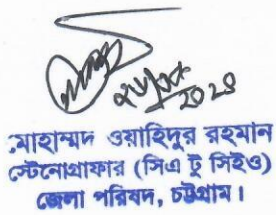 মোহাম্মদ ওয়াহিদুর রহমান
স্টেনোগ্রাফার (সিএ টু সিইও)
জেলা পরিষদ, চট্টগ্রাম।